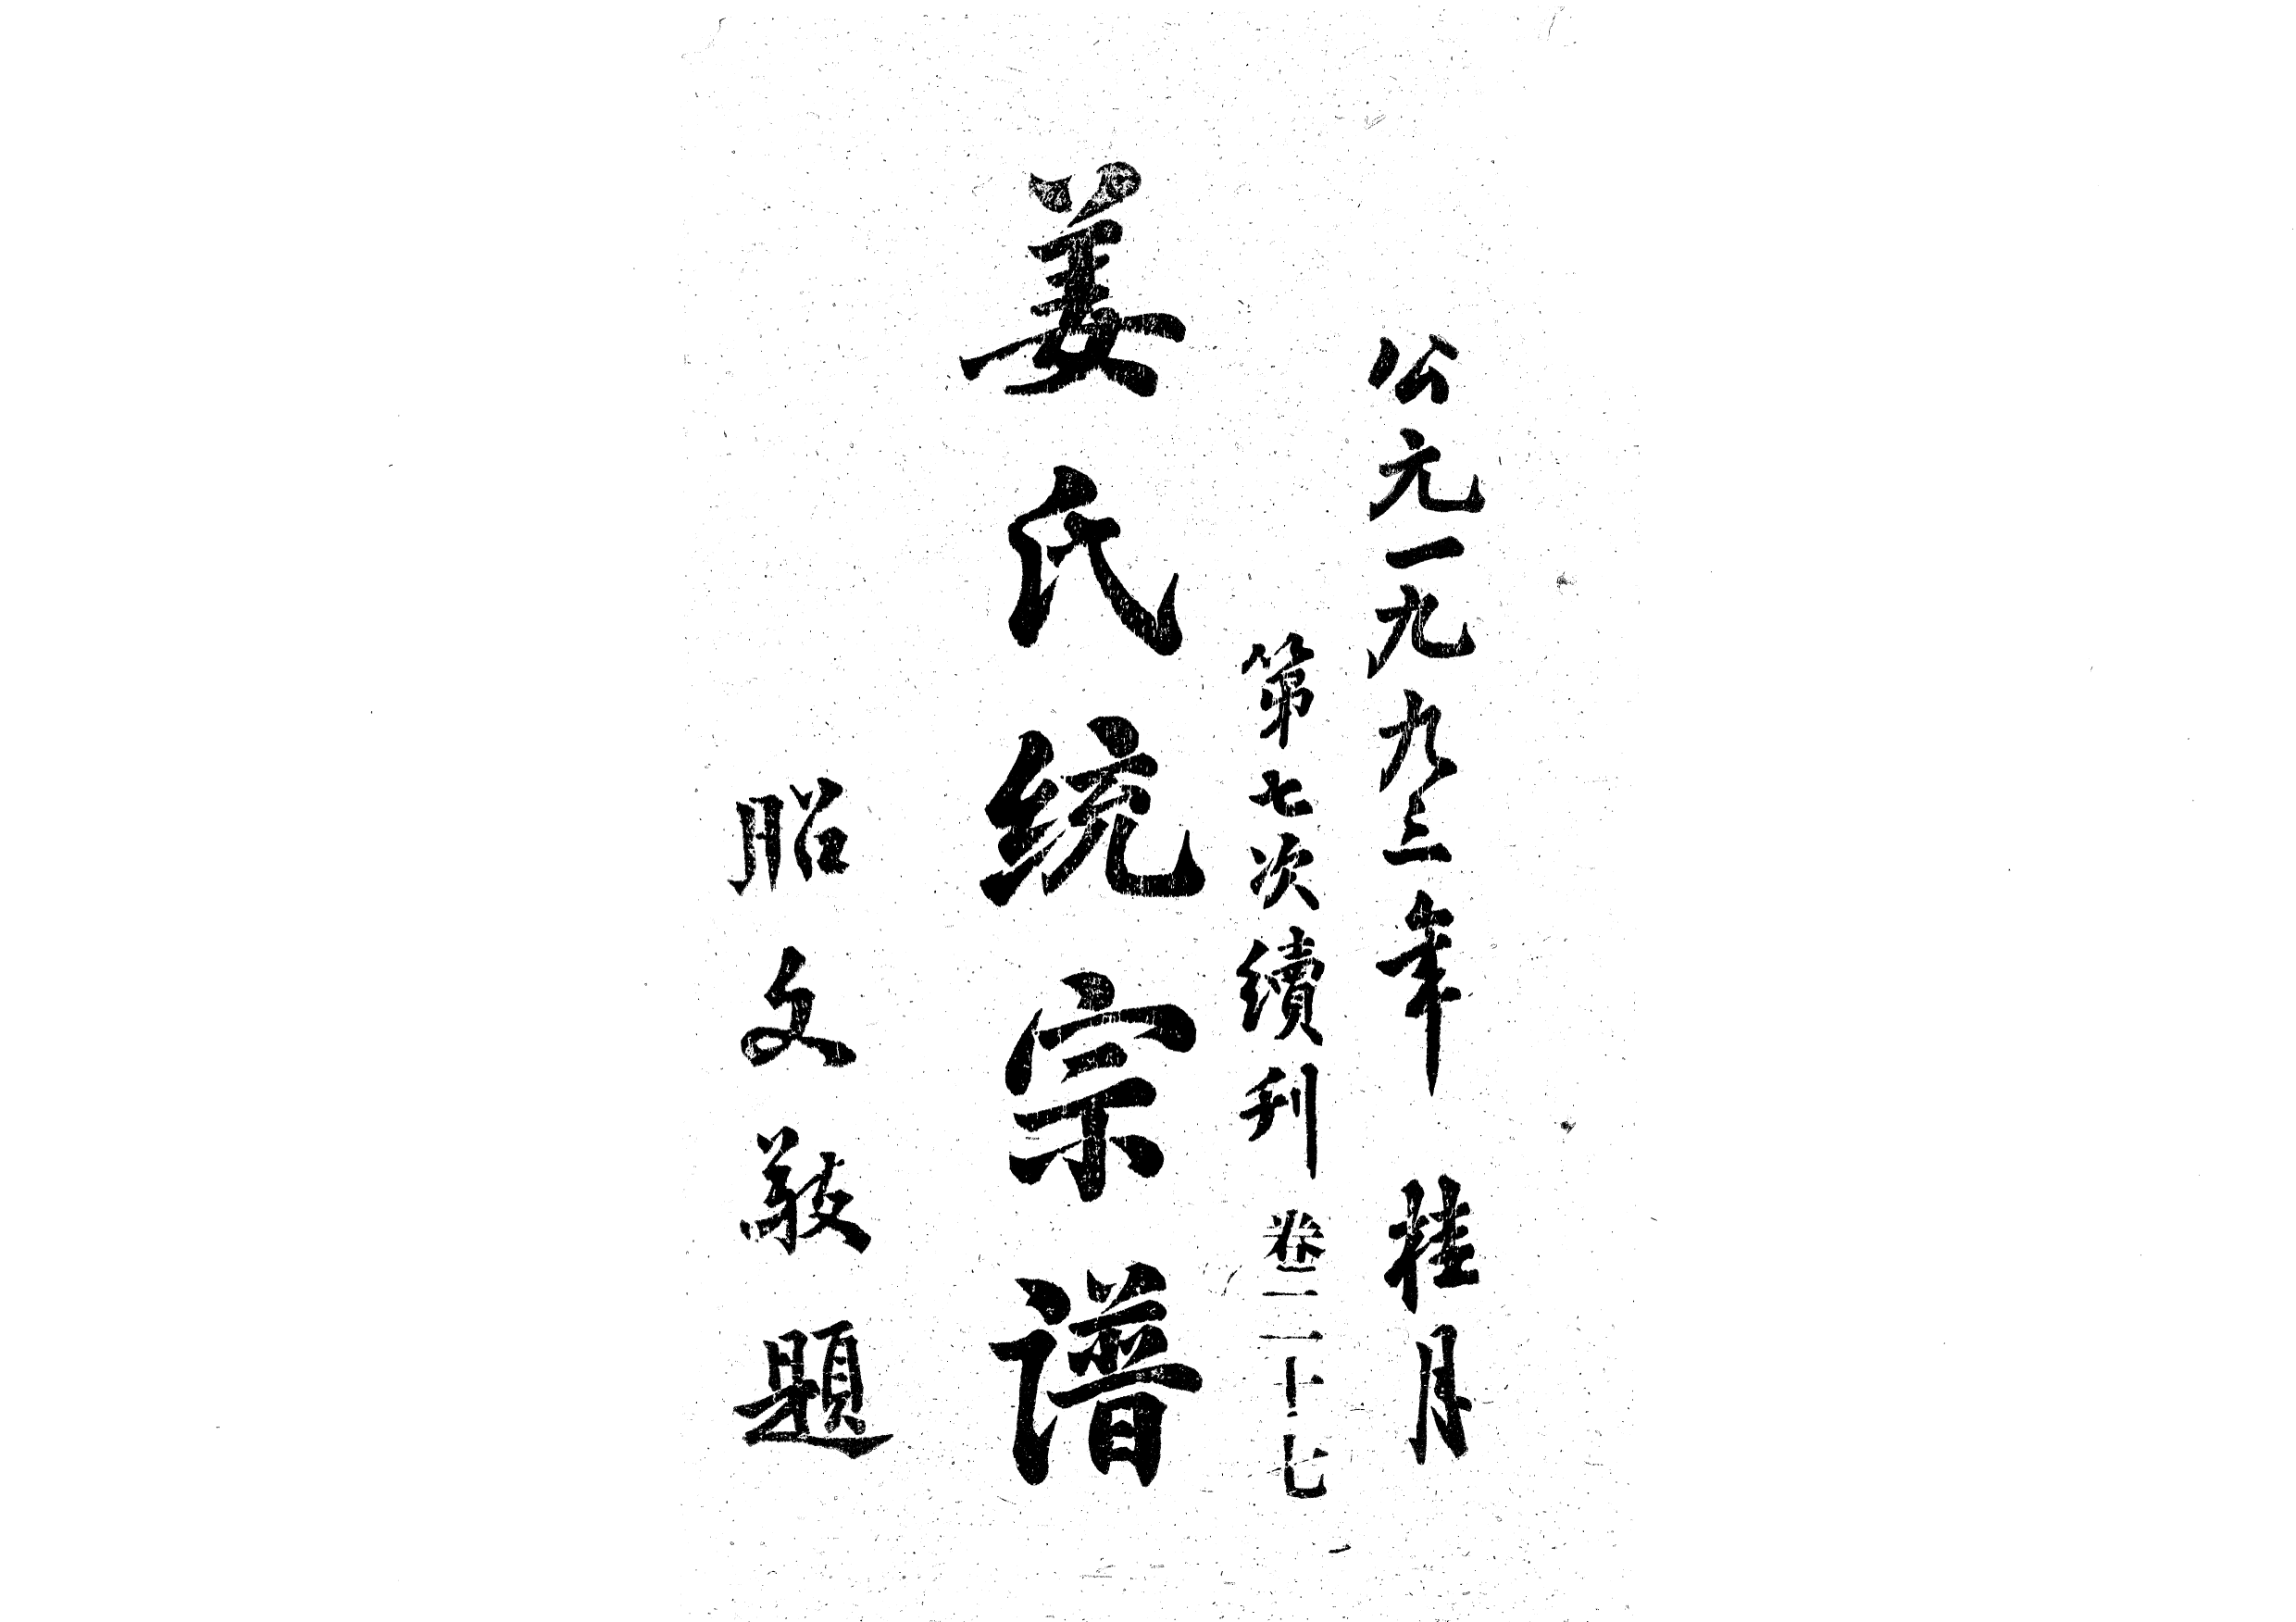 公元一九九三年 桂月
第七次續刊 卷二十七
姜氏统宗谱
昭文敬題